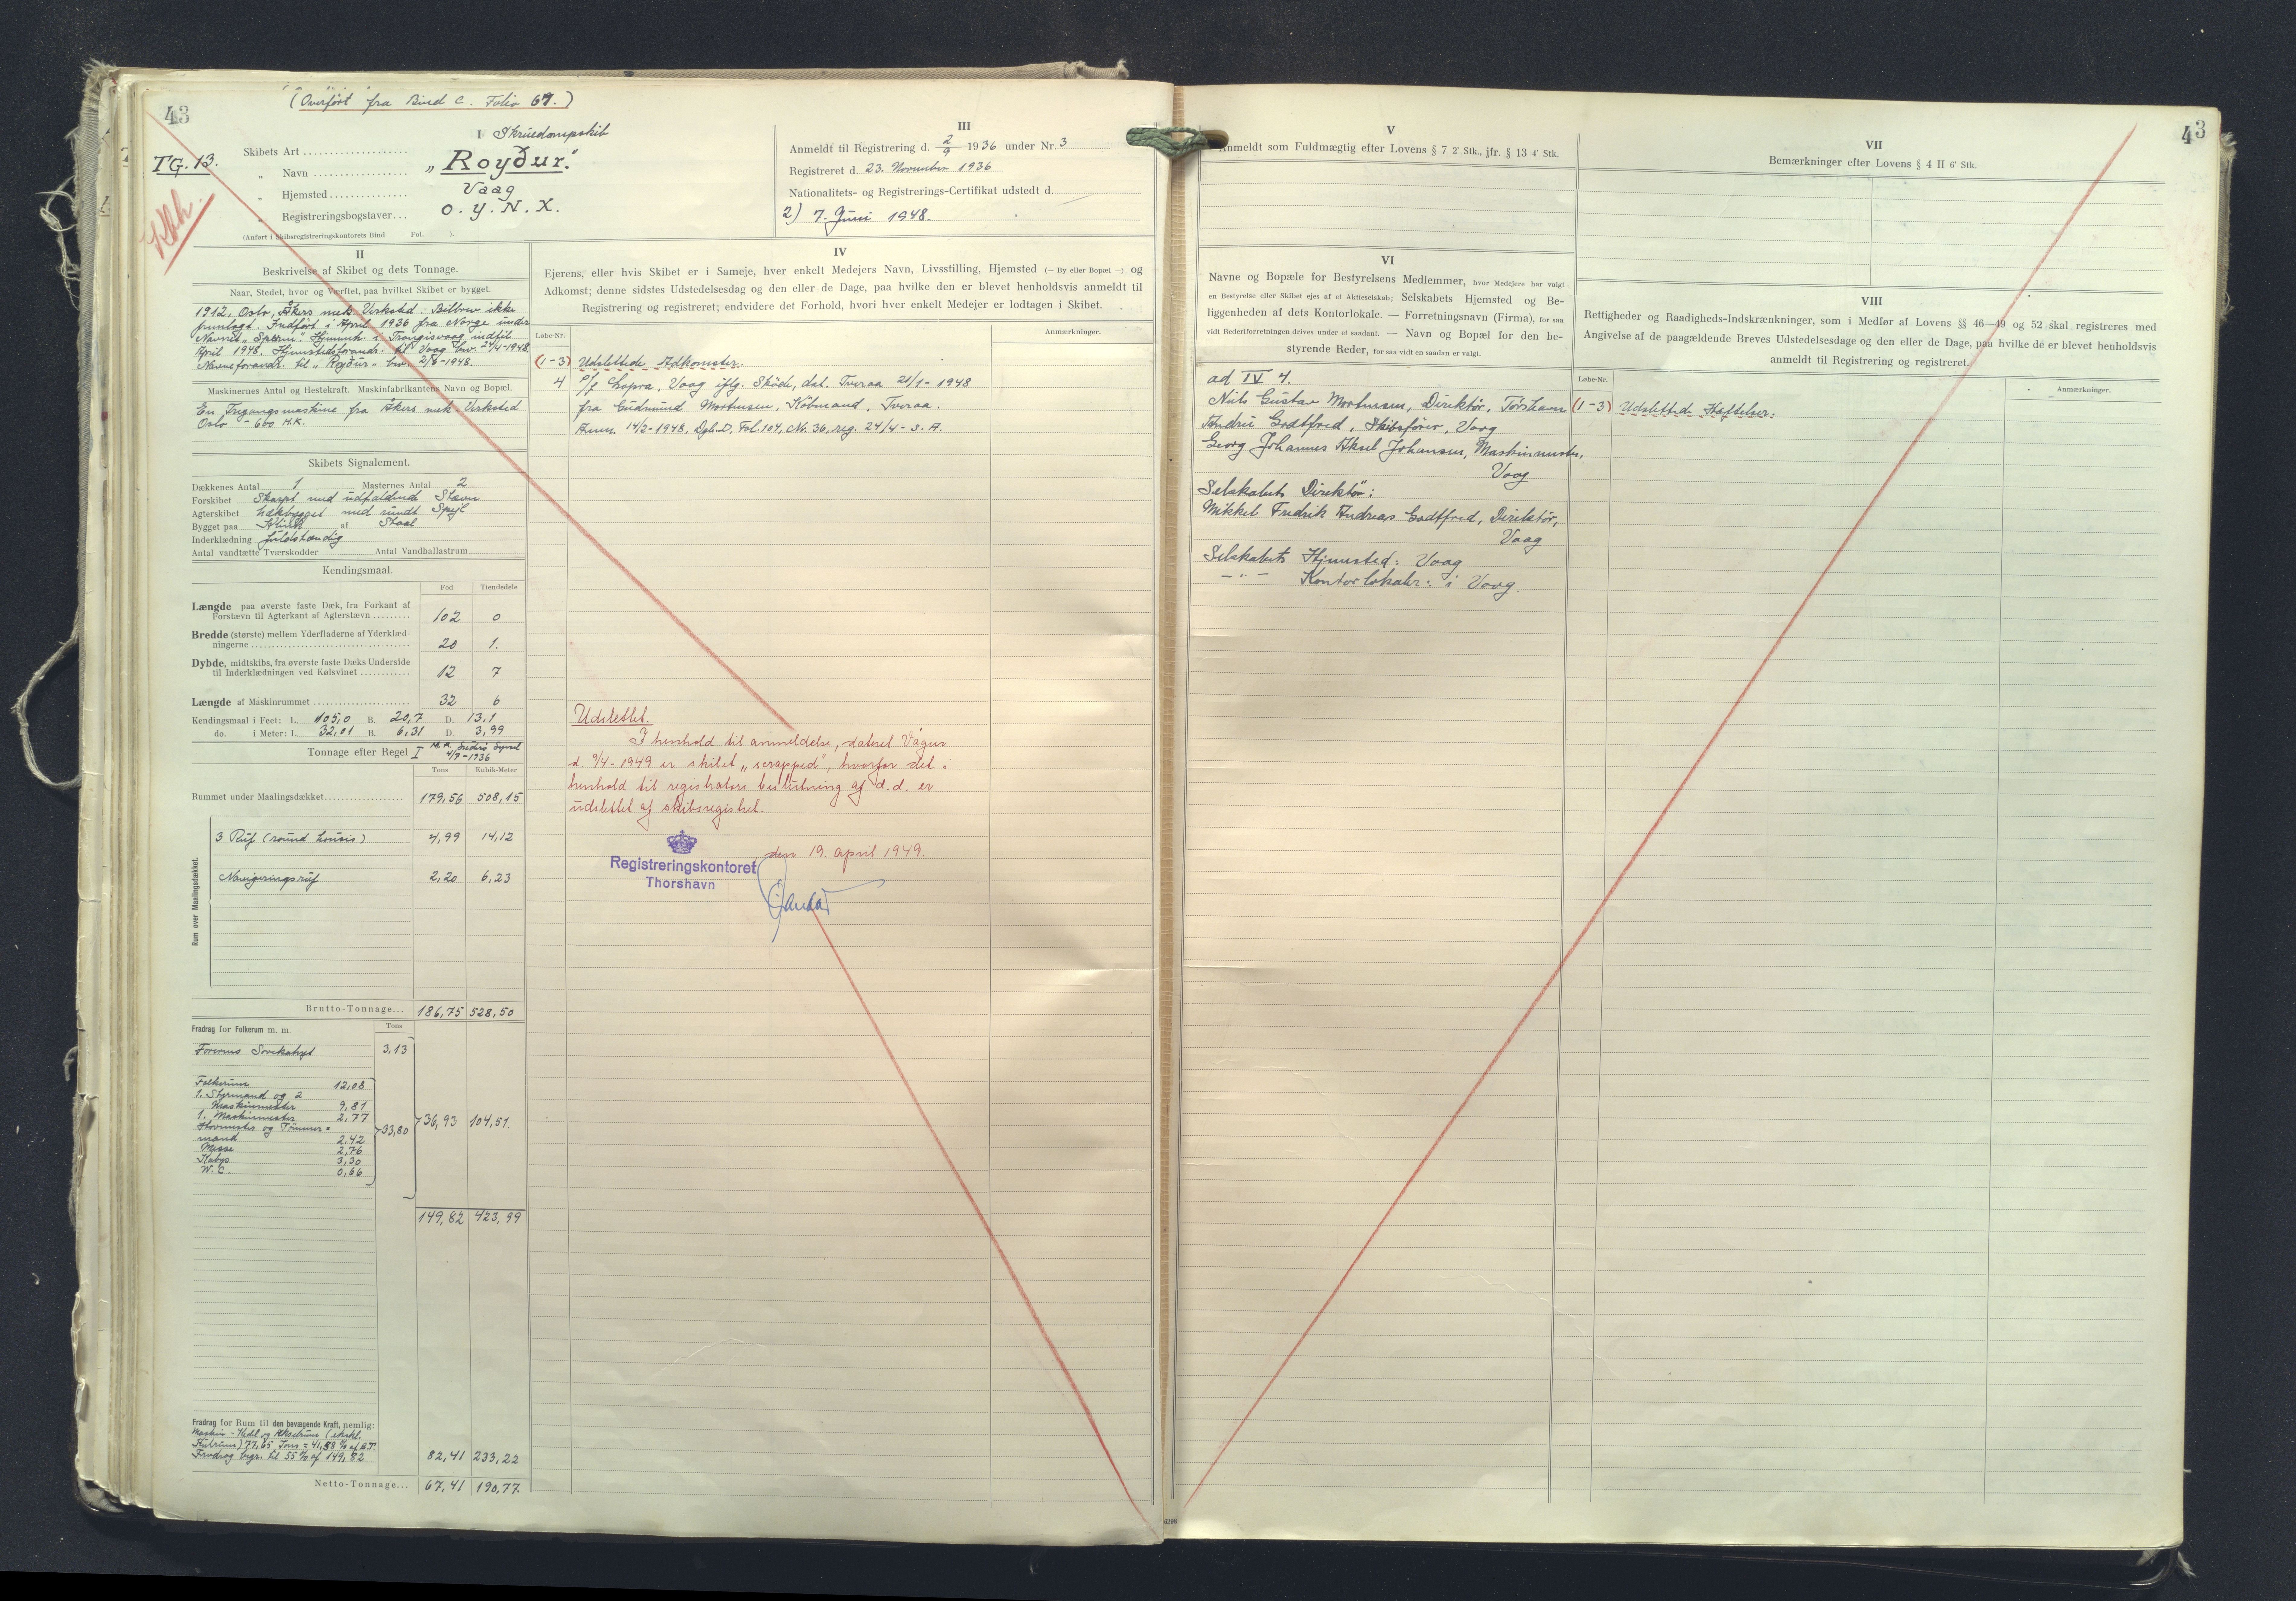 (Overført fra Bind C. Folio 67.)
43
TG. 13.
I
Skibets Art Skruedampskib
" Navn „Royður."
" Hjemsted Vaag
" Registreringsbogstaver O. Y. N. X.
(Anført i Skibsregistreringskontorets Bind Fol. ).
II
Beskrivelse af Skibet og dets Tonnage.
Naar, Stedet, hvor og Værftet, paa hvilket Skibet er bygget.
1912, Oslo, Åkers mek. Virksted. Bilbrev ikke
fremlagt. Indført i April 1936 fra Norge under
Navnet „Sperm". Hjemmeh. i Trangisvaag indtil
April 1948. Hjemstedsforandr. til Vaag bev. 24/4-1948
Navneforandr. til „Royður" bev. 2/6-1948.
Maskinernes Antal og Hestekraft. Maskinfabrikantens Navn og Bopæl.
En Ingangsmaskine fra Åkers mek. Virksted
Oslo - 600 H.K.
Skibets Signalement.
Dækkenes Antal 1 Masternes Antal 2
Forskibet Skarpt med udfaldende Stævn
Agterskibet hækbygget med rundt Spejl
Bygget paa Klink af Staal
Inderklædning fuldstændig
Antal vandtætte Tværskodder Antal Vandballastrum
Kendingsmaal.
Fod Tiendedele
Længde paa øverste faste Dæk, fra Forkant af
Forstævn til Agterkant af Agterstævn 102 0
Bredde (største) mellem Yderfladerne af Yderklæd-
ningerne 20 1.
Dybde, midtskibs, fra øverste faste Dæks Underside
til Inderklædningen ved Kølsvinet 12 7
Længde af Maskinrummet 32 6
Kendingsmaal i Feet: L. 105,0 B. 20,7 D. 13,1
do. i Meter: L. 32,01 B. 6,31 D. 3,99
Tonnage efter Regel I
4/9-1936
Tons Kubik-Meter
Rummet under Maalingsdækket 179,56 508,15
Rum over Maalingsdækket.
3 Ruf (round houses) 4,99 14,12
Navigeringsruf 2,20 6,23
Brutto-Tonnage... 186,75 528,50
Fradrag for Folkerum m. m. Tons
Førerens 3,13
Folkerum 12,08
1. Styrmand og 2
Maskinmester 9,81
1. Maskinmester 2,77
Hovmester og Tømmer-
mand 2,42
Messe 2,76
Kabys 3,30
W.C. 0,66
33,80 36,93 104,51.
149,82 423,99
Fradrag for Rum til den bevægende Kraft, nemlig:
Maskin- Kedel og Akselrum (ekskl.
Kulrum) 77,65 Tons = 41,58 % af B.T.
Fradrag begr. til 55 % af 149,82 82,41 233,22
Netto-Tonnage... 67,41 190,77.
III
Anmeldt til Registrering d. 2/9 1936 under Nr. 3
Registreret d. 23. November 1936
Nationalitets- og Registrerings-Certifikat udstedt d.
2) 7. Juni 1948.
IV
Ejerens, eller hvis Skibet er i Sameje, hver enkelt Medejers Navn, Livsstilling, Hjemsted (— By eller Bopæl —) og
Adkomst; denne sidstes Udstedelsesdag og den eller de Dage, paa hvilke den er blevet henholdsvis anmeldt til
Registrering og registreret; endvidere det Forhold, hvori hver enkelt Medejer er lodtagen i Skibet.
Løbe-Nr. Anmærkninger.
(1-3) Udslettede Adkomster.
4 P/f Lopra, Vaag iflg. Skøde, dat. Tveraa 21/1-1948
fra Gudmund Mortensen, Købmand, Tveraa.
Anm. 14/2-1948, Dgb. D, Fol. 104, Nr. 36, reg. 24/4- s. A.
Udslettet.
I henhold til anmeldelse, dateret Vágur
d. 9/4-1949 er skibet „scrapped", hvorfor det i
henhold til registrators beslutning af d.d. er
udslettet af skibsregistret.
Registreringskontoret den 19. april 1949.
Thorshavn
43
V
Anmeldt som Fuldmægtig efter Lovens § 7 2' Stk., jfr. § 13 4' Stk.
VI
Navne og Bopæle for Bestyrelsens Medlemmer, hvor Medejere har valgt
en Bestyrelse eller Skibet ejes af et Aktieselskab; Selskabets Hjemsted og Be-
liggenheden af dets Kontorlokale. — Forretningsnavn (Firma), for saa
vidt Rederiforretningen drives under et saadant. — Navn og Bopæl for den be-
styrende Reder, for saa vidt en saadan er valgt.
ad IV 4.
Niels Gustav Mortensen, Direktør, Tórshavn
Andrew Godtfred, Skibsfører, Vaag
Georg Johannes Aksel Johansen, Maskinmester,
Vaag
Selskabets Direktør:
Mikkel Fredrik Andreas Godtfred, Direktør,
Vaag
Selskabets Hjemsted: Vaag
— " — Kontorlokaler: i Vaag.
VII
Bemærkninger efter Lovens § 4 II 6' Stk.
VIII
Rettigheder og Raadigheds-Indskrænkninger, som i Medfør af Lovens §§ 46—49 og 52 skal registreres med
Angivelse af de paagældende Breves Udstedelsesdage og den eller de Dage, paa hvilke de er blevet henholdsvis
anmeldt til Registrering og registreret.
Løbe-Nr. Anmærkninger.
(1-3) Udslettede Hæftelser.